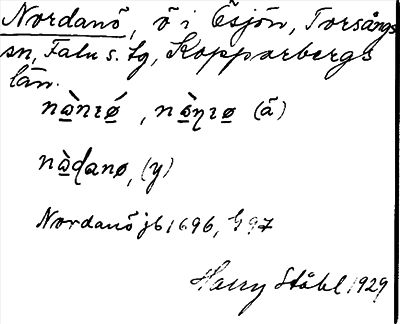 Nordanö, ö i Ösjön, Torsångs
sn, Falu s. tg, Kopparbergs
län.
(ä)
(y)
Nordanö jb 1696, 97
Harry Ståhl 1929